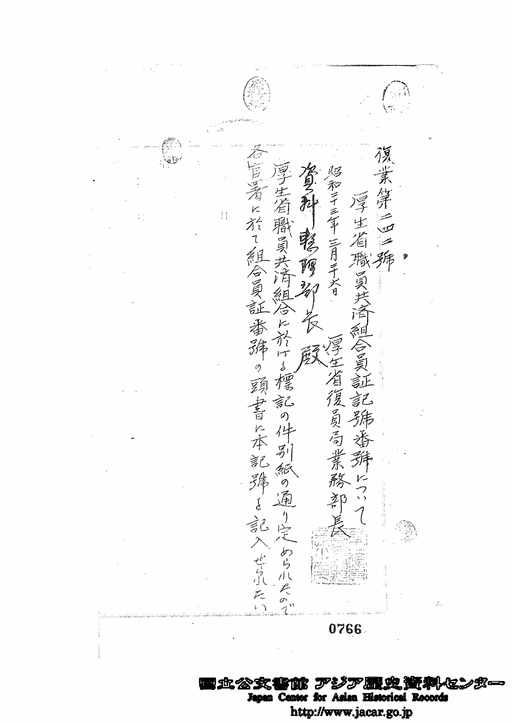 復業第二四二號
厚生省職員共済組合員証記號番號について
昭和二十三年二月二十六日
厚生省復員局業務部長
資料整理部長殿
厚生省職員共済組合に於ける標記の件別紙の通り定められたので
各官署に於て組合員証番號の頭書に本記號を記入せられたい
0766
国立公文書館 アジア歴史資料センター
Japan Center for Asian Historical Records
http://www.jacar.go.jp